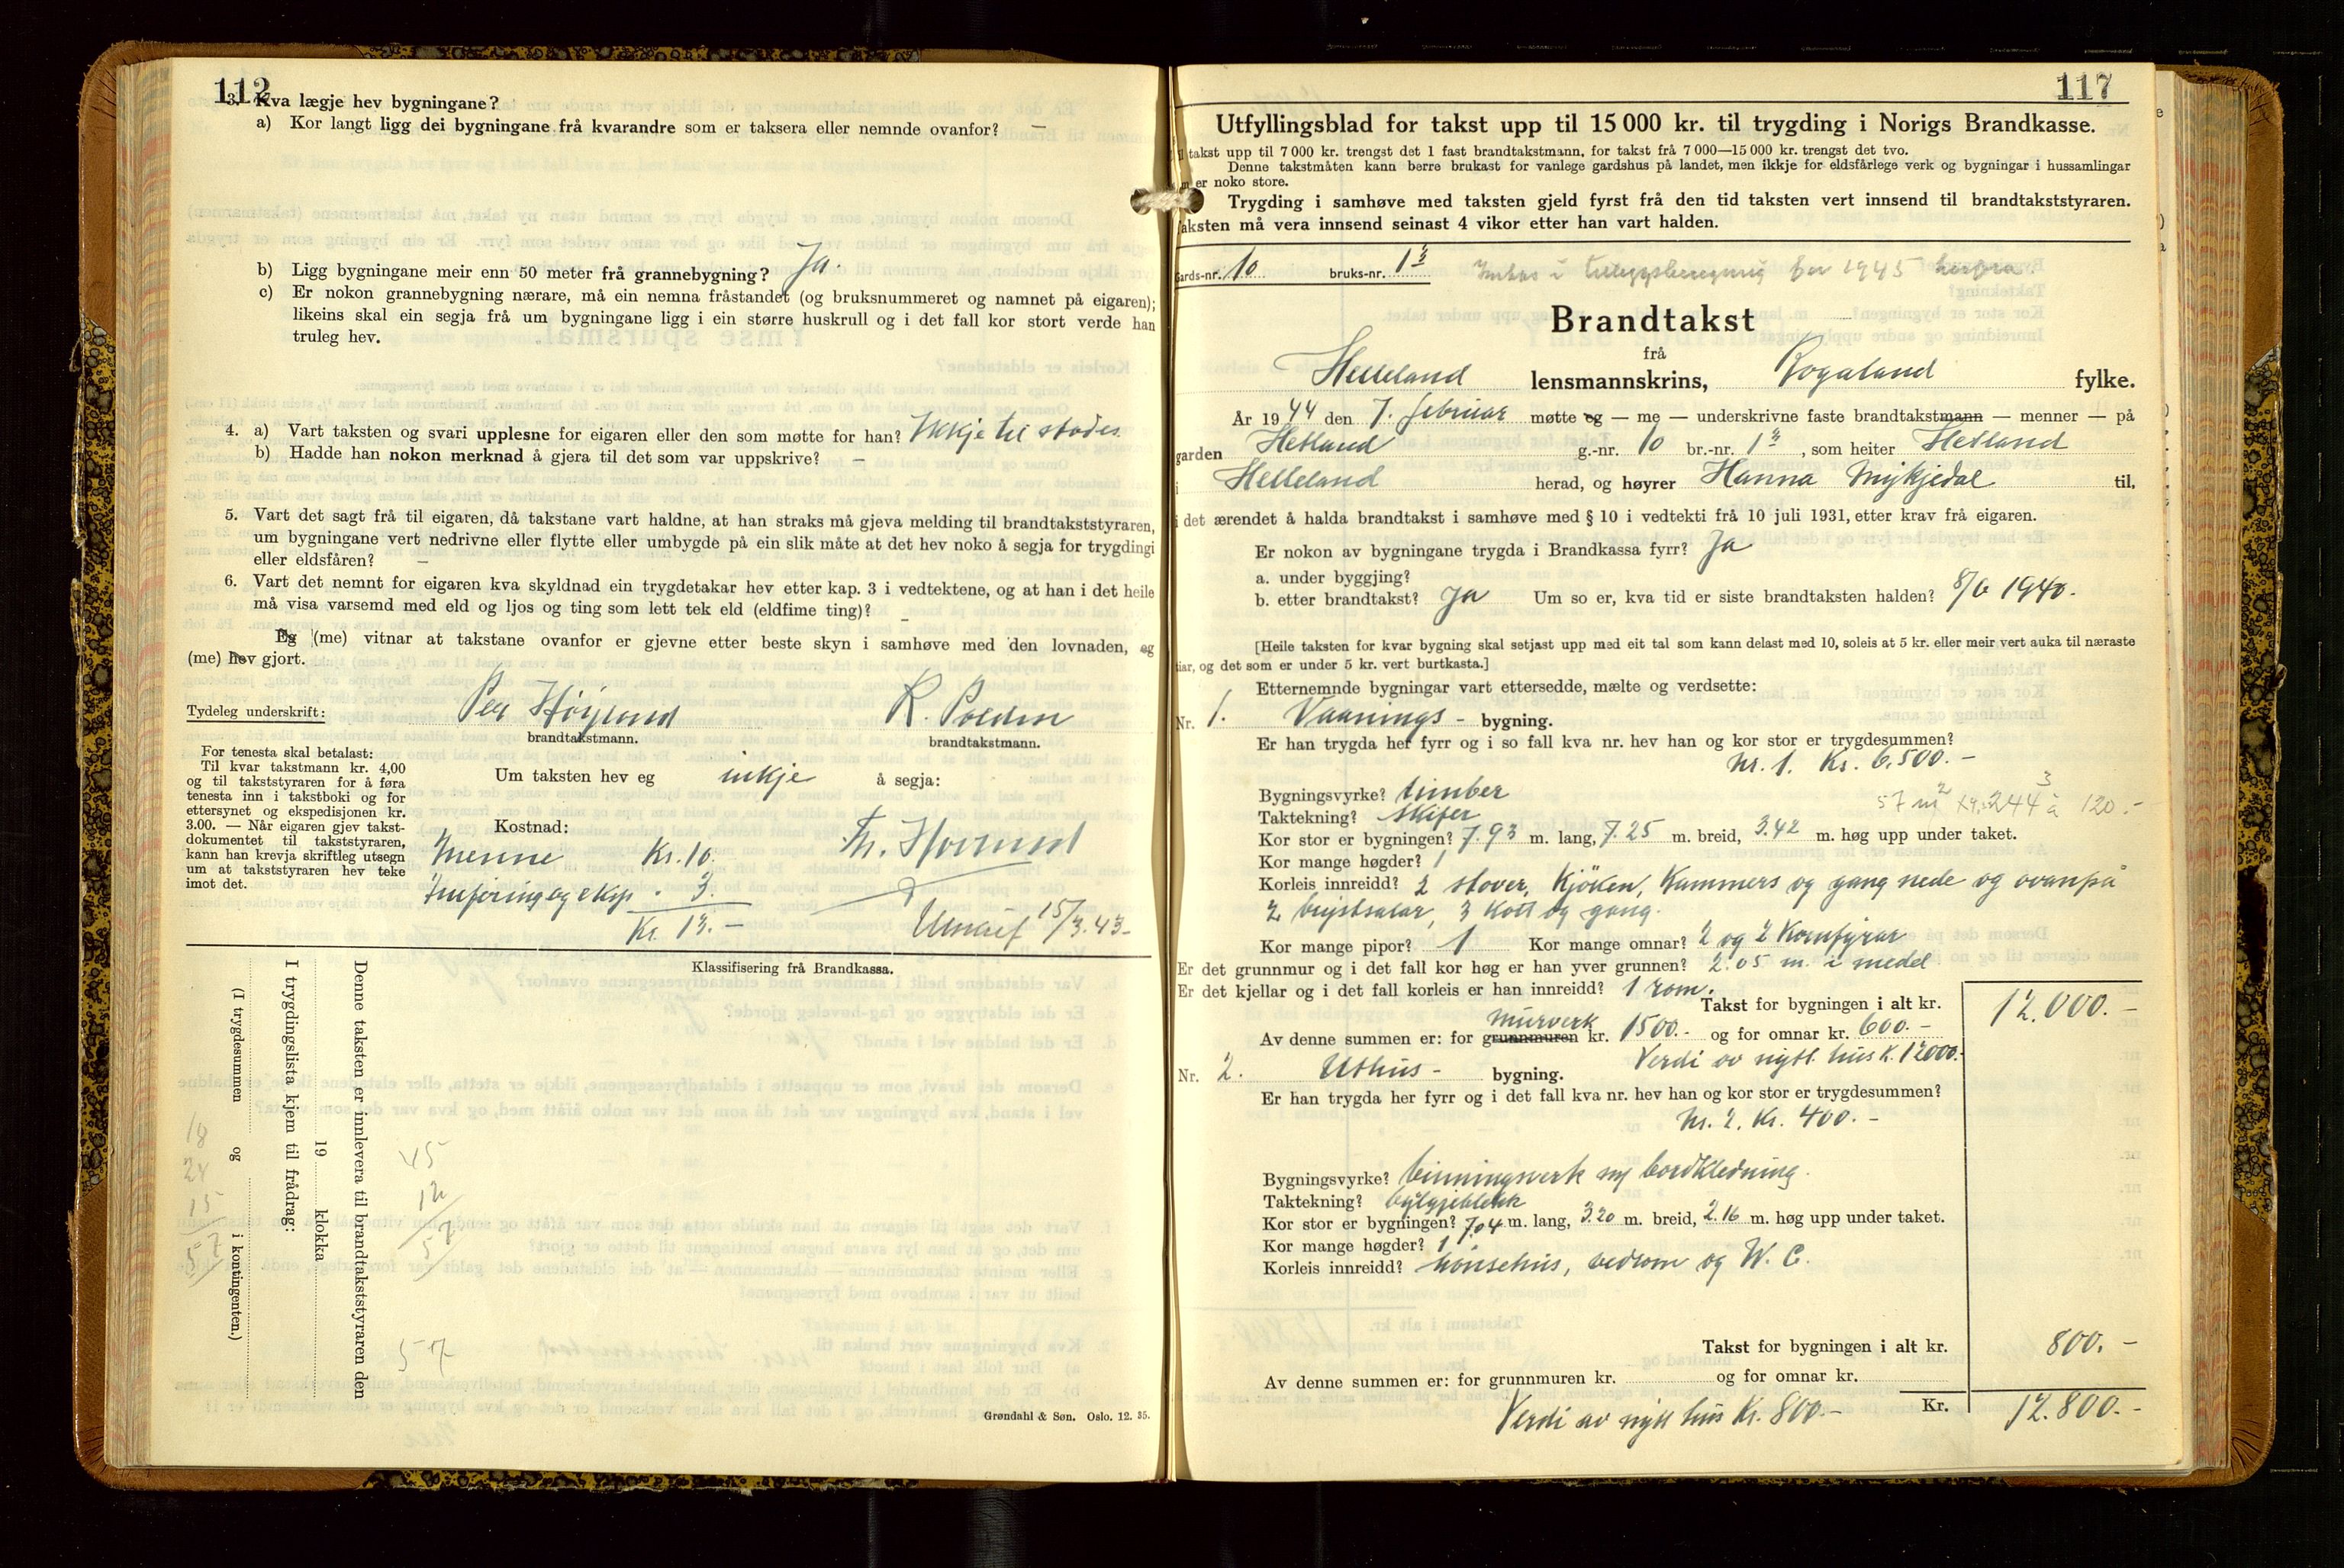 112
3. Kva lægje hev bygningane?
a) Kor langt ligg dei bygningane frå kvarandre som er taksera eller nemnde ovanfor? —
b) Ligg bygningane meir enn 50 meter frå grannebygning? Ja.
c) Er nokon grannebygning nærare, må ein nemna fråstandet (og bruksnummeret og namnet på eigaren);
likeins skal ein segja frå um bygningane ligg i ein større huskrull og i det fall kor stort verde han
truleg hev.
4. a) Vart taksten og svari upplesne for eigaren eller den som møtte for han? Ikkje til stades
b) Hadde han nokon merknad å gjera til det som var uppskrive? —
5. Vart det sagt frå til eigaren, då takstane vart haldne, at han straks må gjeva melding til brandtakststyraren,
um bygningane vert nedrivne eller flytte eller umbygde på ein slik måte at det hev noko å segja for trygdingi
eller eldsfåren? —
6. Vart det nemnt for eigaren kva skyldnad ein trygdetakar hev etter kap. 3 i vedtektene, og at han i det heile
må visa varsemd med eld og ljos og ting som lett tek eld (eldfime ting)? —
Eg (me) vitnar at takstane ovanfor er gjevne etter beste skyn i samhøve med den lovnaden, eg
(me) hev gjort.
Tydeleg underskrift: Per Høyland R.
brandtakstmann. brandtakstmann.
For tenesta skal betalast:
Til kvar takstmann kr. 4,00
og til takststyraren for å føra
tenesta inn i takstboki og for
ettersynet og ekspedisjonen kr.
3.00. — Når eigaren gjev takst-
dokumentet til takststyraren,
kann han krevja skriftleg utsegn
um at takststyraren hev teke
imot det.
Um taksten hev eg inkje å segja:
Kostnad:
Menne Kr. 10.
Innføring og eksp. - 3
Kr. 13. —
15/3.43-
Klassifisering frå Brandkassa.
Denne taksten er innlevera til brandtakststyraren den
19 klokka
I trygdingslista kjem til frådrag:
(I trygdesummen og i kontingenten.)
18
24
15
57
45
12
57
57
Grøndahl & Søn. Oslo. 12. 35.
117
Utfyllingsblad for takst upp til 15 000 kr. til trygding i Norigs Brandkasse.
takst upp til 7 000 kr. trengst det 1 fast brandtakstmann, for takst frå 7 000—15 000 kr. trengst det tvo.
Denne takstmåten kann berre brukast for vanlege gardshus på landet, men ikkje for eldsfårlege verk og bygningar i hussamlingar
er noko store.
Trygding i samhøve med taksten gjeld fyrst frå den tid taksten vert innsend til brandtakststyraren.
aksten må vera innsend seinast 4 vikor etter han vart halden.
Gards-nr. 10 bruks-nr. 1 i tilleggsberegning for 1945 herfra.
Brandtakst
frå
Helleland lensmannskrins, Rogaland fylke.
År 1944 den 7. februar møtte eg — me — underskrivne faste brandtakstmann — menner — på
garden Hetland g.-nr. 10 br.-nr. 1, som heiter Hetland
i Helleland herad, og høyrer Hanna Mykjedal til,
i det ærendet å halda brandtakst i samhøve med § 10 i vedtekti frå 10 juli 1931, etter krav frå eigaren.
Er nokon av bygningane trygda i Brandkassa fyrr? Ja
a. under byggjing?
b. etter brandtakst? Ja Um so er, kva tid er siste brandtaksten halden? 8/6 1940.
[Heile taksten for kvar bygning skal setjast upp med eit tal som kann delast med 10, soleis at 5 kr. eller meir vert auka til næraste
tiar, og det som er under 5 kr. vert burtkasta.]
Etternemnde bygningar vart ettersedde, mælte og verdsette:
Nr. 1. Vaanings - bygning.
Er han trygda her fyrr og i so fall kva nr. hev han og kor stor er trygdesummen?
Nr. 1. Kr. 6.500. —
Bygningsvyrke? timber
57 m² 244 3 à 120. -
Taktekning? skifer
Kor stor er bygningen? 7.93 m. lang, 7.25 m. breid, 3.42 m. høg upp under taket.
Kor mange høgder? 1
Korleis innreidd? 2 stover, Kjöken, Kammers og gang nede og ovanpå
2 kvistsalar, 3 kott og gang.
Kor mange pipor? 1 Kor mange omnar? 2 og 2 Komfyrar
Er det grunnmur og i det fall kor høg er han yver grunnen? 2.05 m. i medel
Er det kjellar og i det fall korleis er han innreidd? 1 rom.
Takst for bygningen i alt kr. 12.000. —
Av denne summen er: for grunnmuren murverk kr. 1500. - og for omnar kr. 600. -
Verdi av nytt hus K. 12000.-
Nr. 2. Uthus - bygning.
Er han trygda her fyrr og i det fall kva nr. hev han og kor stor er trygdesummen?
Nr. 2. Kr. 400. —
Bygningsvyrke? binningsverk m/ bordkledning.
Taktekning? bylgjeblekk
Kor stor er bygningen? 7.04 m. lang, 3.20 m. breid, 2.16 m. høg upp under taket.
Kor mange høgder? 1
Korleis innreidd? hönsehus, vedrom og W. C.
Takst for bygningen i alt kr. 800. —
Av denne summen er: for grunnmuren kr. og for omnar kr.
Verdi av nytt hus Kr. 800. —
Kr. 12.800. -